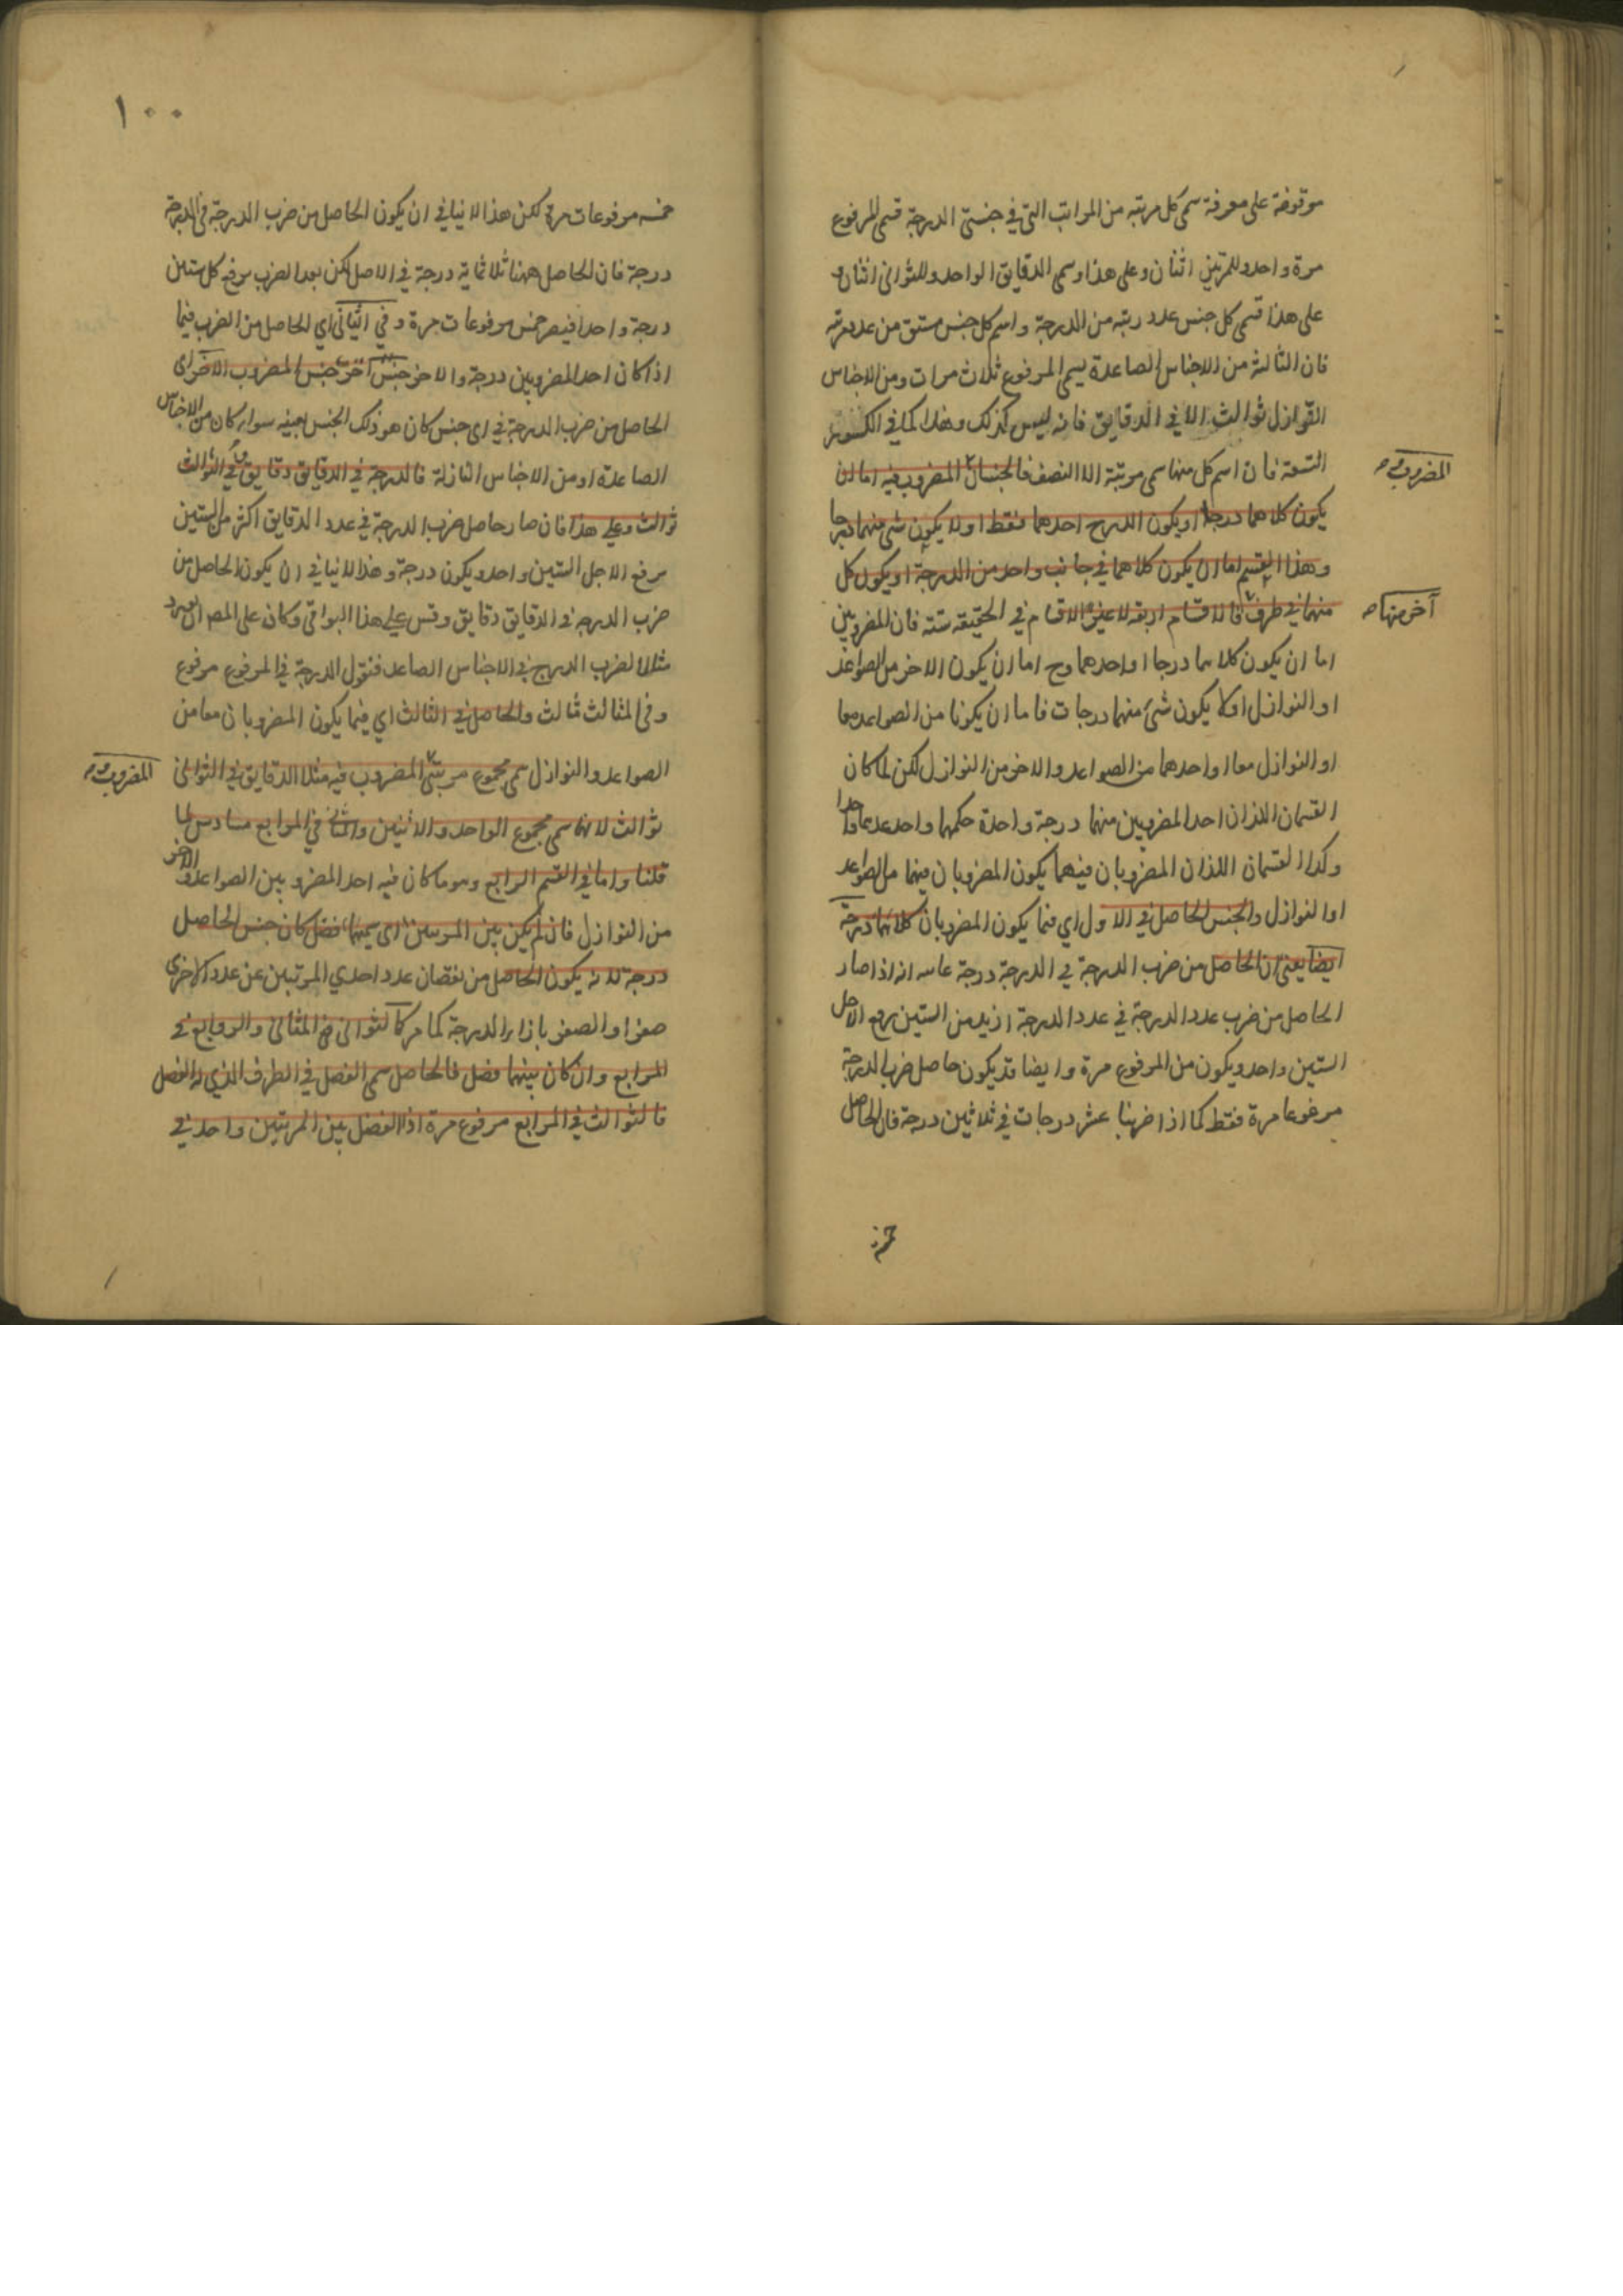 موقوفة على معرفة سمى كل مرتبه من المراتب التى في جنبتى الدرجة فسمى المرفوع
مرة واحد وللمرتين اثنان وعلى هذا وسمى الدقايق الواحد وللثوانى اثنان و
على هذا فسمى كل جنس عدد رتبته من الدرجة واسم كل جنس مشتق من عدد مرتبته
فان الثالثة من الاجناس الصاعدة يسمى المرفوع ثلاث مرات ومن الاجناس
النوازل ثوالث الا في الدقايق فانه ليس كذلك وهذا كما في الكسور
التسعة فان اسم كل منها سمى مرتبة الا النصف فالجنسان المضروب فيه اما ان
المضروب و
يكون كلاهما درجا او يكون الدرج احدهما فقط او لا يكون شى منهما درجا
وهذا القسم اما ان يكون كلاهما في جانب واحد من الدرجة او يكون كل
منهما في طرف فالاقسام اربعة لا غير والاقسام في الحقيقه ستة فان المضروبين
آخر منها
اما ان يكون كلاهما درجا او احدهما وح اما ان يكون الاخر من الصواعد
او النوازل او لا يكون شئ منهما درجات فاما ان يكونا من الصواعد معا
او النوازل معا او احدهما من الصواعد والاخر من النوازل لكن لما كان
القسمان اللذان احد المضروبين منهما درجة واحدة حكمهما واحد عدهما واحدا
وكذا القسمان اللذان المضروبان فيهما يكون المضروبان فيهما من الصواعد
او النوازل والجنس الحاصل في الاول اي فيما يكون المضروبان كلاهما درجة
ايضا يعنى ان الحاصل من ضرب الدرجة في الدرجة درجة غايته انه اذا صار
الحاصل من ضرب عدد الدرجة في عدد الدرجة ازيد من الستين يرفع لاجل
الستين واحد ويكون من المرفوع مرة وايضا قد يكون حاصل ضرب الدرجة
مرفوعا مرة فقط كما اذا ضربنا عشر درجات في ثلاثين درجة فان الحاصل
خمسه
١٠٠
خمسه مرفوعات مرة لكن هذا لا ينافي ان يكون الحاصل من ضرب الدرجة في الدرجة
درجة فان الحاصل ههنا ثلاثماية درجة في الاصل لكن بعد الضرب يرفع كل ستين
درجة واحدا فيصير خمس مرفوعات مرة وفي الثانى اي الحاصل من الضرب فيما
اذا كان احد المضروبين درجة والاخر جنس اخر جنس المضروب الاخر اى
الحاصل من ضرب الدرجة في اى جنس كان هو ذلك الجنس بعينه سواء كان من الاجناس
الصاعدة او من الاجناس النازلة فالدرجة في الدقايق دقايق وفي الثوالث
ثوالث وعلى هذا فان صار حاصل ضرب الدرجة في عدد الدقايق اكثر من الستين
يرفع لاجل الستين واحد ويكون درجة وهذا لا ينافي ان يكون الحاصل من
ضرب الدرجة في الدقايق دقايق وقس على هذا البواقى وكان على المص ان يورد
مثالا لضرب الدرج في الاجناس الصاعد فنقول الدرجة في المرفوع مرفوع
وفي المثالث مثالث والحاصل في الثالث اي فيما يكون المضروبان معا من
الصواعد والنوازل سمى مجموع مرتبتى المضروب فيه مثلا الدقايق في الثوانى
المضروب و
ثوالث لانها سمى مجموع الواحد والاثنين والمثانى في المرابع مسادس لما
قلنا واما في القسم الرابع وهو ما كان فيه احد المضروبين الصواعد والاخر
من النوازل فان لم يكن بين المرتبتين اى سميهما فضل كان جنس الحاصل
درجة لانه يكون الحاصل من نقصان عدد احدي المرتبتين عن عدد الاخرى
صفرا والصفر بازاء الدرجة كما مر كالثوانى في المثانى والروابع في
المرابع وان كان بينهما فضل فالحاصل سمى الفضل في الطرف الذي له الفضل
فالثوالث في المرابع مرفوع مرة اذ الفضل بين المرتبتين واحد في